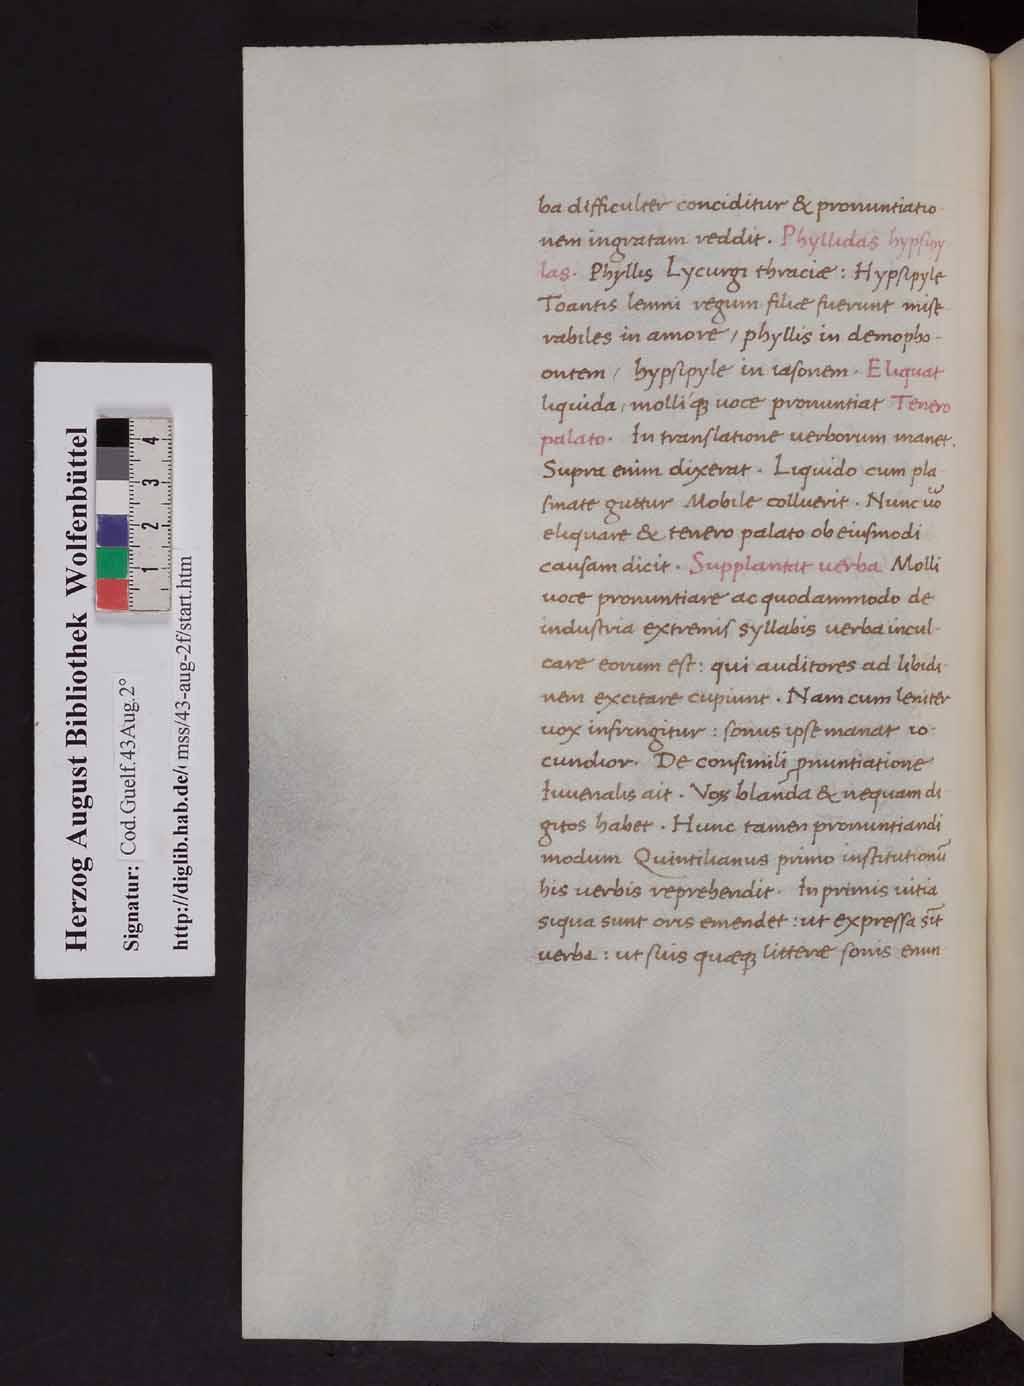 Herzog August Bibliothek Wolfenbüttel
Signatur: Cod.Guelf.43Aug.2°
http://diglib.hab.de/ mss/43-aug-2f/start.htm
1 2 3 4
ba difficulter conciditur & pronuntiatio
nem ingratam reddit. Phyllidas hypsipy
las. Phyllis Lycurgi thraciæ: Hypsipyle
Toantis lemni regum filiæ fuerunt mise
rabiles in amore / phyllis in demopho-
ontem / hypsipyle in iasonem. Eliquat
liquida, molliq; uoce pronuntiat Tenero
palato. In translatione uerborum manet.
Supra enim dixerat. Liquido cum pla
smate guttur Mobile colluerit. Nunc uo
eliquare & tenero palato ob eiusmodi
causam dicit. Supplantat uerba Molli
uoce pronuntiare ac quodammodo de
industria extremis syllabis uerba incul-
care eorum est: qui auditores ad libidi-
nem excitare cupiunt. Nam cum leniter
uox infringitur: sonus ipse manat io-
cundior. De consimili pnuntiatione
Iuuenalis ait. Vox blanda & nequam di
gitos habet. Hunc tamen pronuntiandi
modum Quintilianus primo institutionū
his uerbis reprehendit. In primis uitia
siqua sunt oris emendet: ut expressa sīt
uerba: ut suis quæq; litteræ sonis enun